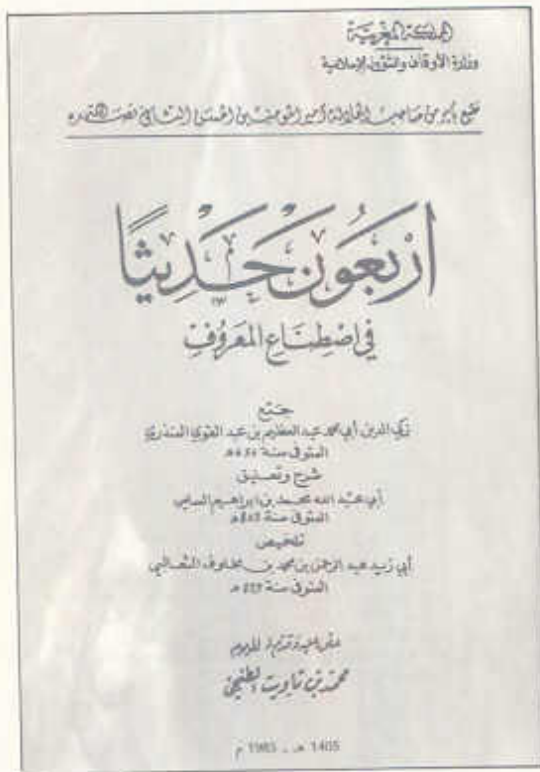 المملكة المغربية
وزارة الأوقاف والشؤون الإسلامية
طبع بأمر من صاحب الجلالة أمير المؤمنين الحسن الثاني نصره الله
اربعون حديثا
في اصطناع المعروف
جمع
زكي الدين أبي محمد عبد العظيم بن عبد القوي المنذري
المتوفى سنة 656هـ
شرح وتعليق
أبي عبد الله محمد بن ابراهيم السلمي
المتوفى سنة 803هـ
تلخيص
أبي زيد عبد الرحمن بن محمد بن مخلوف الثعالبي
المتوفى سنة هـ
محمد بن تاويت الطنجي
1405 هـ - 1985 م